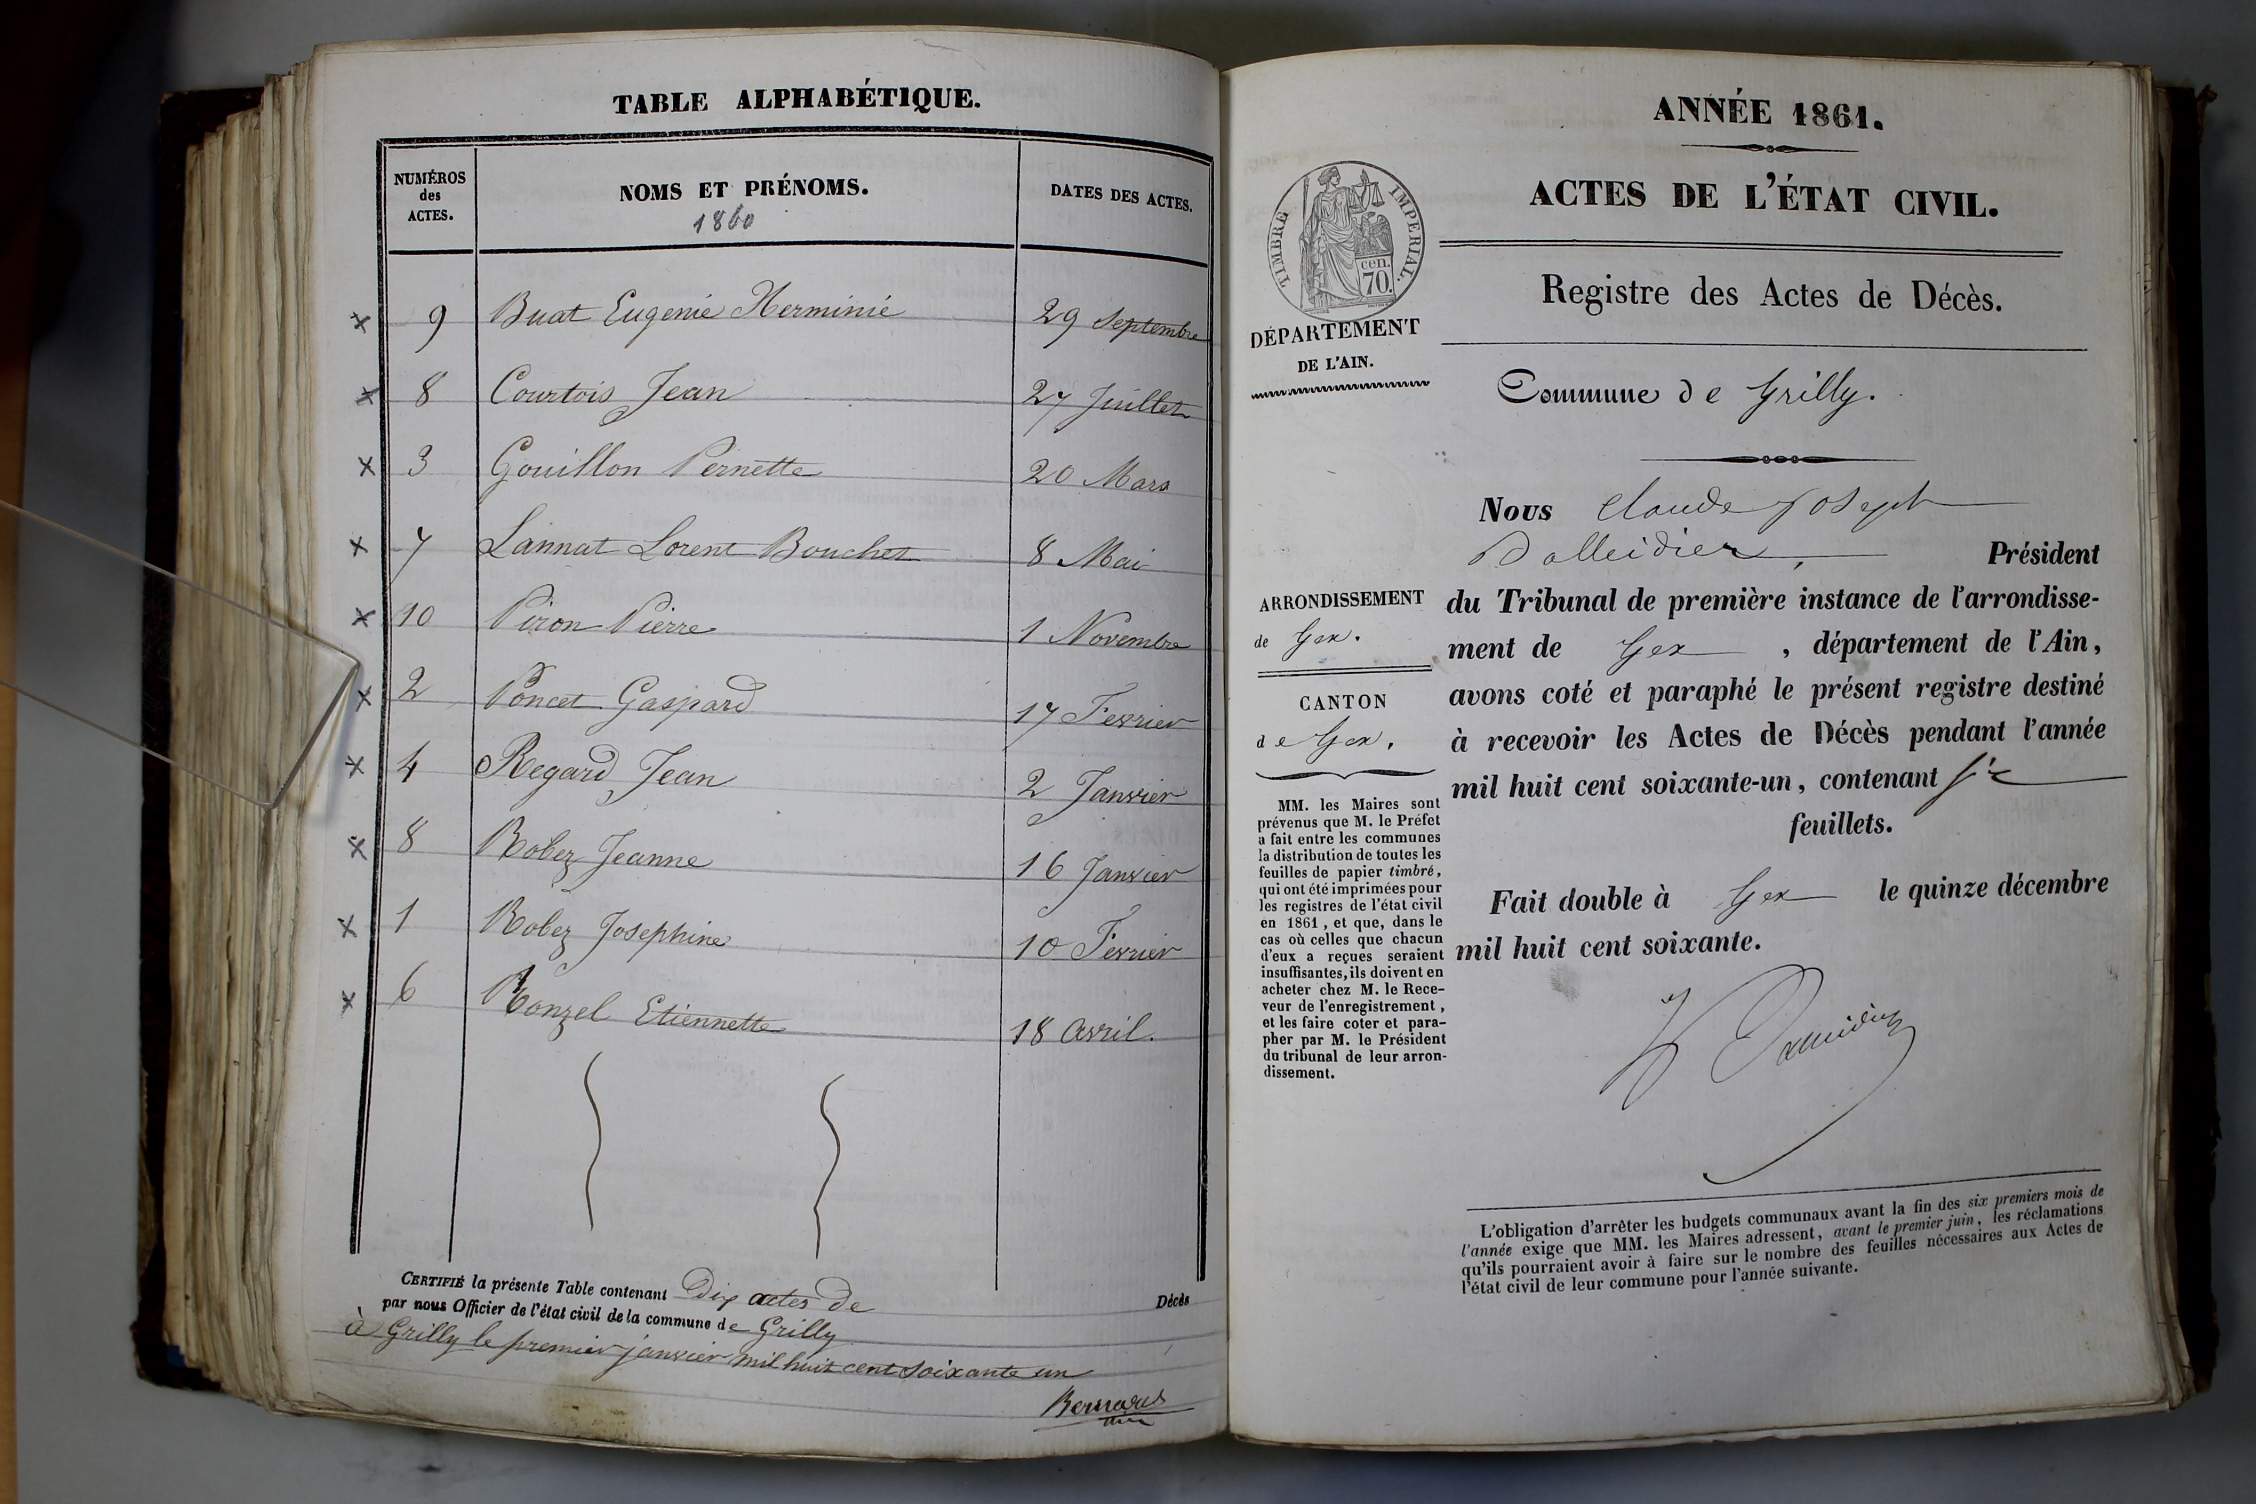 TABLE ALPHABÉTIQUE.
NUMÉROS
des
ACTES.
NOMS ET PRÉNOMS.
1860
DATES DES ACTES.
9 Buat Eugenie Herminie 29 Septembre
8 Courtois Jean 27 Juillet
3 Gouillon Pernette 20 Mars
7 Lannat Lorent Bouchet 8 Mai
10 Piron Pierre 1 Novembre
2 Poncet Gaspard 17 Fevrier
4 Regard Jean 2 Janvier
8 Robez Jeanne 16 Janvier
1 Robez Josephine 10 Fevrier
6 Ronzel Etiennette 18 Avril.
CERTIFIÉ la présente Table contenant Dix actes de Décès
par nous Officier de l'état civil de la commune de Grilly
à Grilly le premier janvier mil huit cent soixante un
ANNÉE 1861.
ACTES DE L'ÉTAT CIVIL.
TIMBRE IMPERIAL.
cen.
70.
DÉPARTEMENT
DE L'AIN.
Registre des Actes de Décès.
Commune de Grilly.
Nous Claude Joseph
Président
du Tribunal de première instance de l'arrondisse-
ment de Gex, département de l'Ain,
avons coté et paraphé le présent registre destiné
à recevoir les Actes de Décès pendant l'année
mil huit cent soixante-un, contenant six
feuillets.
Fait double à Gex le quinze décembre
mil huit cent soixante.
ARRONDISSEMENT
de Gex.
CANTON
de Gex.
MM. les Maires sont
prévenus que M. le Préfet
a fait entre les communes
la distribution de toutes les
feuilles de papier timbré,
qui ont été imprimées pour
les registres de l'état civil
en 1861, et que, dans le
cas où celles que chacun
d'eux a reçues seraient
insuffisantes, ils doivent en
acheter chez M. le Rece-
veur de l'enregistrement,
et les faire coter et para-
pher par M. le Président
du tribunal de leur arron-
dissement.
L'obligation d'arrêter les budgets communaux avant la fin des six premiers mois de
l'année exige que MM. les Maires adressent, avant le premier juin, les réclamations
qu'ils pourraient avoir à faire sur le nombre des feuilles nécessaires aux Actes de
l'état civil de leur commune pour l'année suivante.